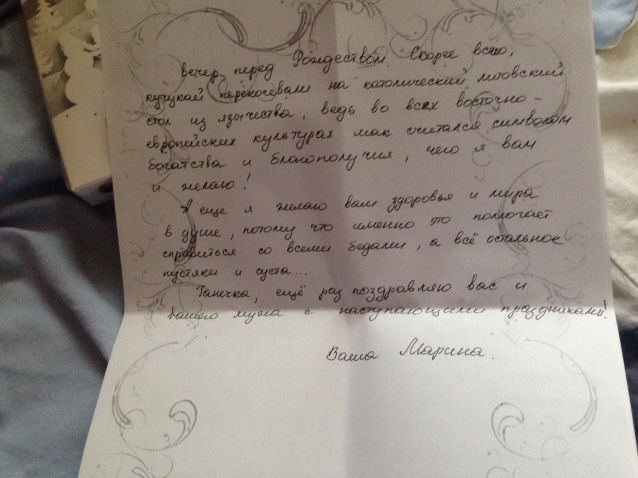 вечер перед Рождеством. Скорее всего,
кучукай перекочевали на католический литовский
стол из язычества, ведь во всех восточно-
европейских культурах мак считался символом
богатства и благополучия, чего я вам
и желаю!
А еще я желаю вам здоровья и мира
в душе, потому что именно это помогает
справиться со всеми бедами, а всё остальное
пустяки и суета...
Танечка, ещё раз поздравляю вас и
вашего мужа с наступающими праздниками!
Ваша Марина.